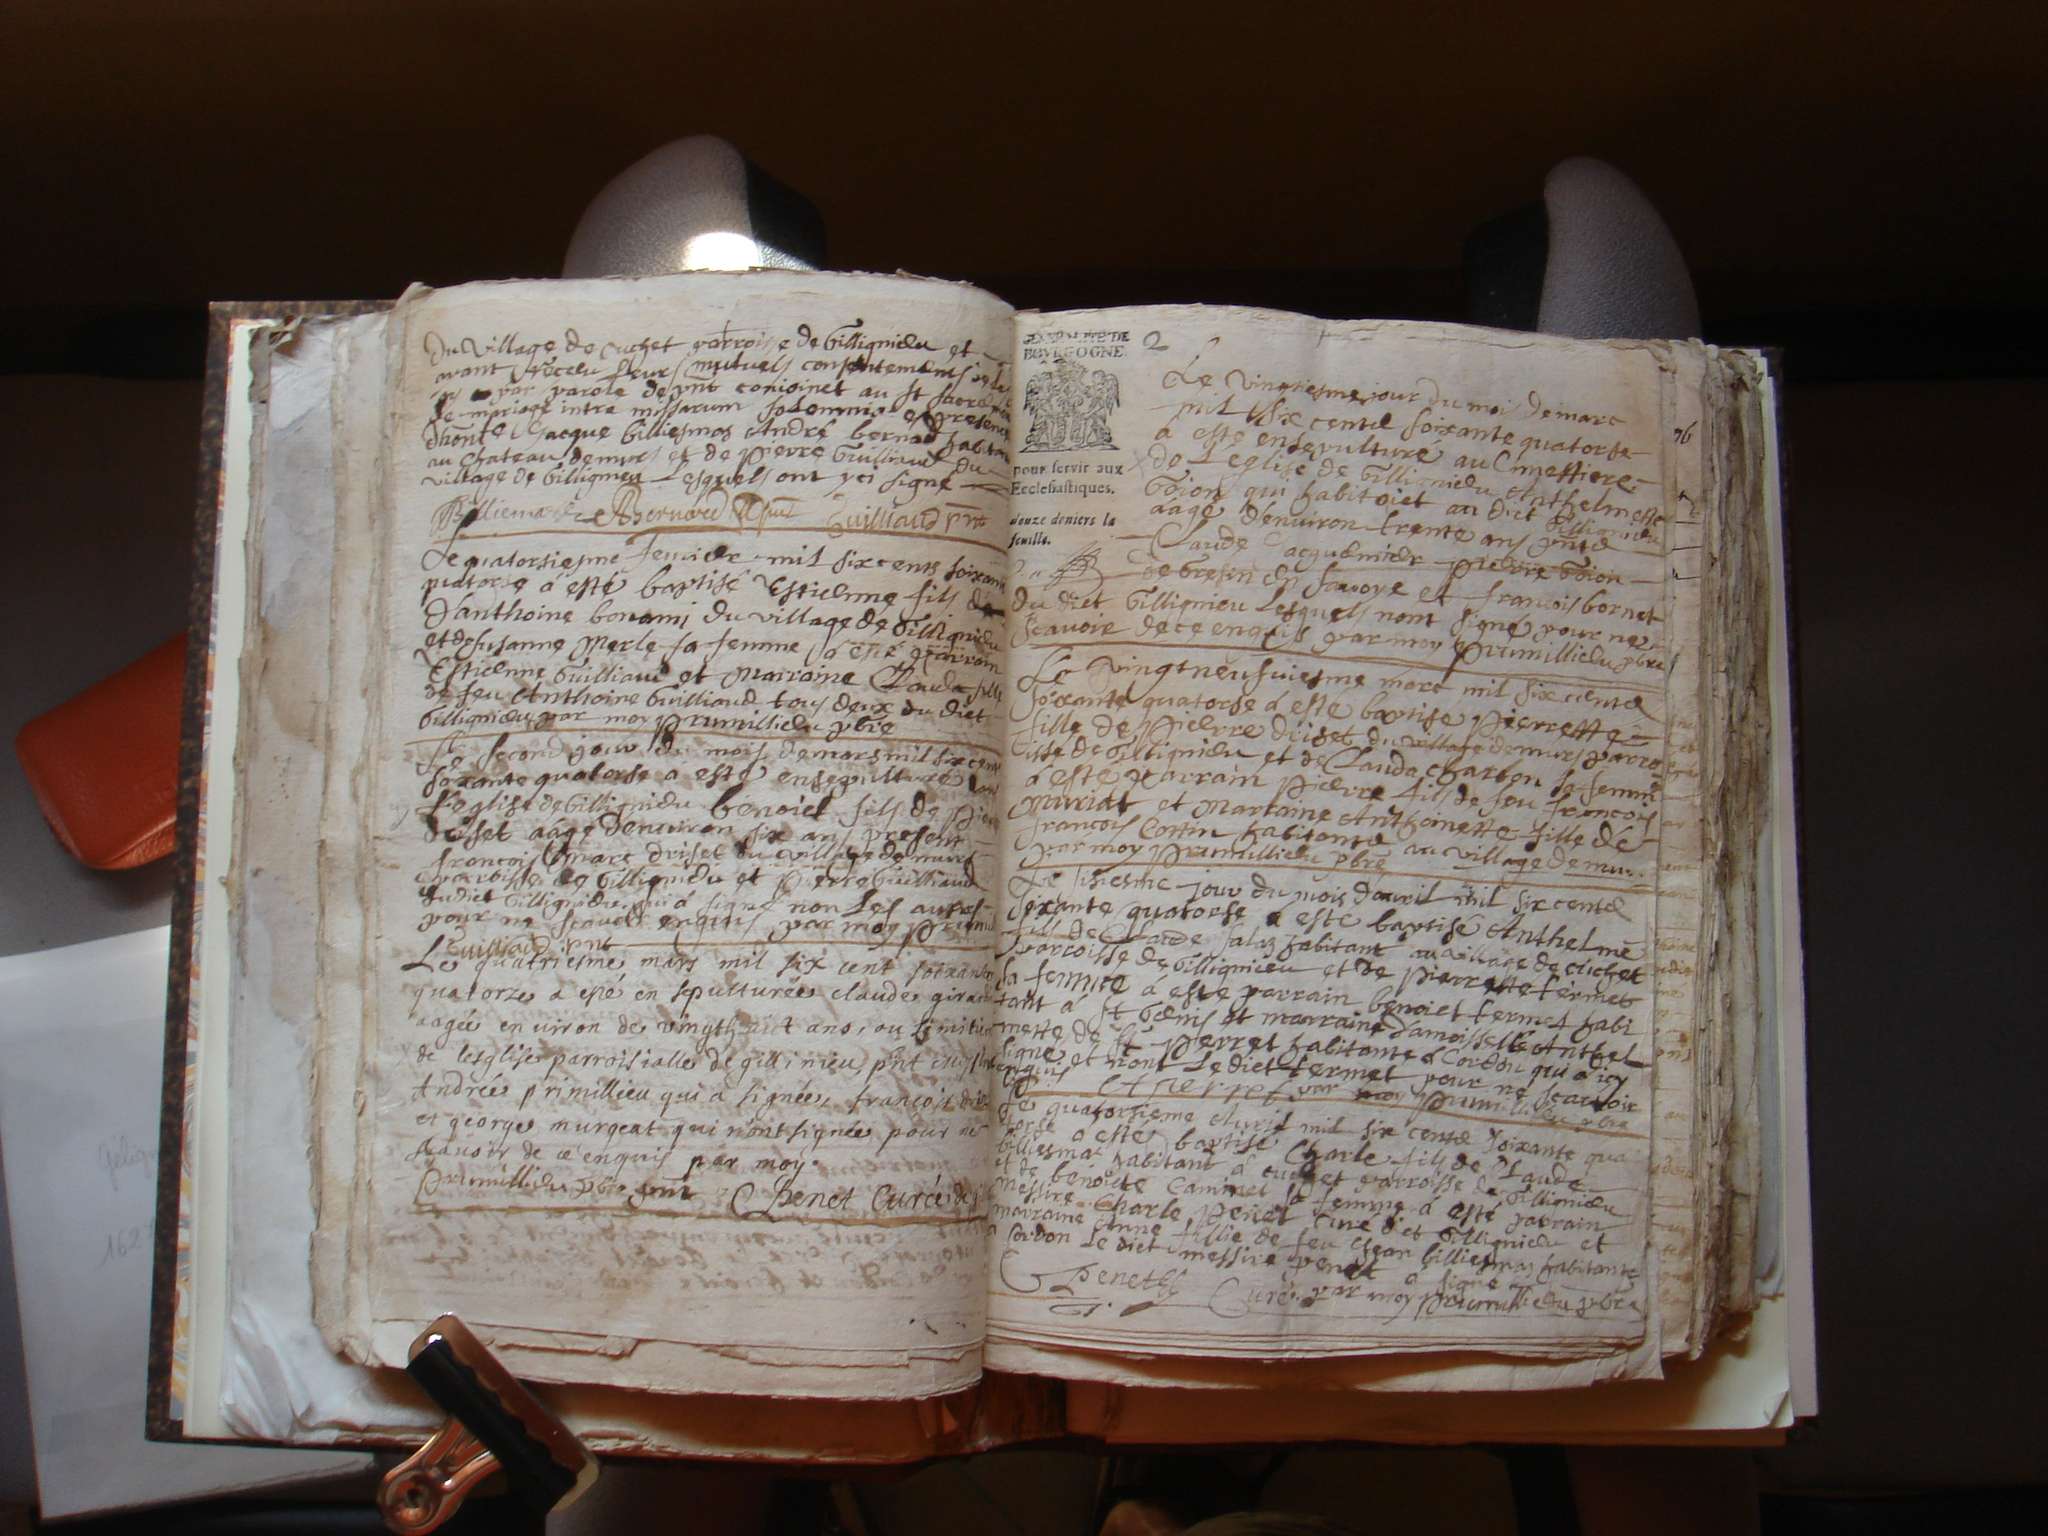 du village de cuchet parroisse de Gillignieu et
avant receu leurs mutuels consentements
par parole de pnt conioinct au St
de mariage intra missarum solomnia et presence
d'honte Jacque Billiemas André bernad habitan
au chateau de murs et de pierre Guilliaud du
village de Gillignieu Lesquels ont yci signé
Billiemas Bernard pnt Guilliaud pnt
Le quatorsiesme feuvier mil six cents soixante
quatorse a esté baptisé Estienne fils de
d'anthoine bonami du village de Gillignieu
et de susanne Merle sa femme a esté parrain
Estienne Guilliaud et Marraine Clauda fille
de feu Anthoine Guilliaud tous deux du diet
Gillignieu par moy Primillieu pbre
Le second jour du mois de mars mil six cent
soixante quatorse a esté ensepulturé
l'eglise de Gillignieu benoiet fils de pier
driset aagé d'environ six ans present
francois marc driset du village de murs
parroisse de Gillignieu et pierre Guilliaud
du diet Gillignieu qui a signé non les autres
pour ne scauoir enquis par moy Primil
Guilliaud pnt
Le quatriesme mars mil six cent soixante
quatorze a esté en sepulturée claude girard
aagée enuiron de vingt huict ans, au simitie
de lesglise parroisialle de gillinieu, pnt
Andrée primillieu qui a signée, francois driz
et george murgeat qui n'ont signée pour ne
scauoir de ce enquis par moy
Primillieu pbre pnt Penet Curé de
GENERALITE DE
BOVRGOGNE
2
pour servir aux
Ecclesiastiques.
douze deniers la
feuille.
Le vingtiesme jour du mois de marc
mil six cente soixante quatorse
a esté ensepulturé au Cimettiere
de Leglise de Gillignieu Anthelmette
Goion qui habitoiet au diet Gillignieu
aagé d'environ trente ans pnte
Claude Jacquemier pierre Goion
de Gresin en savoye et francois bornet
du diet Gillignieu Lesquels n'ont signé pour ne
scavoir de ce enquis par moy Primillieu pbre
Le vingtneufuiesme marc mil six cente
soixante quatorse a esté baptise Pierrette
fille de pierre driset du village de murs parro
isse de Gillignieu et de Clauda charben sa femm
a esté parrain pierre fils de feu francois
muriat et marraine Anthoinette fille de
francois Cottin habitante au village de mu
par moy Primillieu pbre
Le sisiesme jour du mois d'auril mil six cente
soixante quatorse a esté baptisé Anthelme
fils de Claude salas habitant au village de cuchet
parroisse de Gillignieu et de pierrette fermet
sa femme a esté parrain benoiet fermet habi
tant à St Genis et marraine damoisselle Anthel
mette de St Pierret habitante à Cordon qui a icy
signé et n'ont Lediet fermet pour ne scauoir
enquis par moy Primillieu pbre
Le quatorsieme Auril mil six cente soixante qua
torse a esté baptisé Charle fils de Claude
billiesmas habitant à cuchet parroisse de Gillignieu
et de benoiete Caminet sa femme a esté parrain
messire Charle Penet Curé diet Gillignieu et
marraine Anne fillie de feu Jean billiesmas habitante
a Cordon Le diet messire penet a signé
Penet Curé par moy Primillieu pbre
76